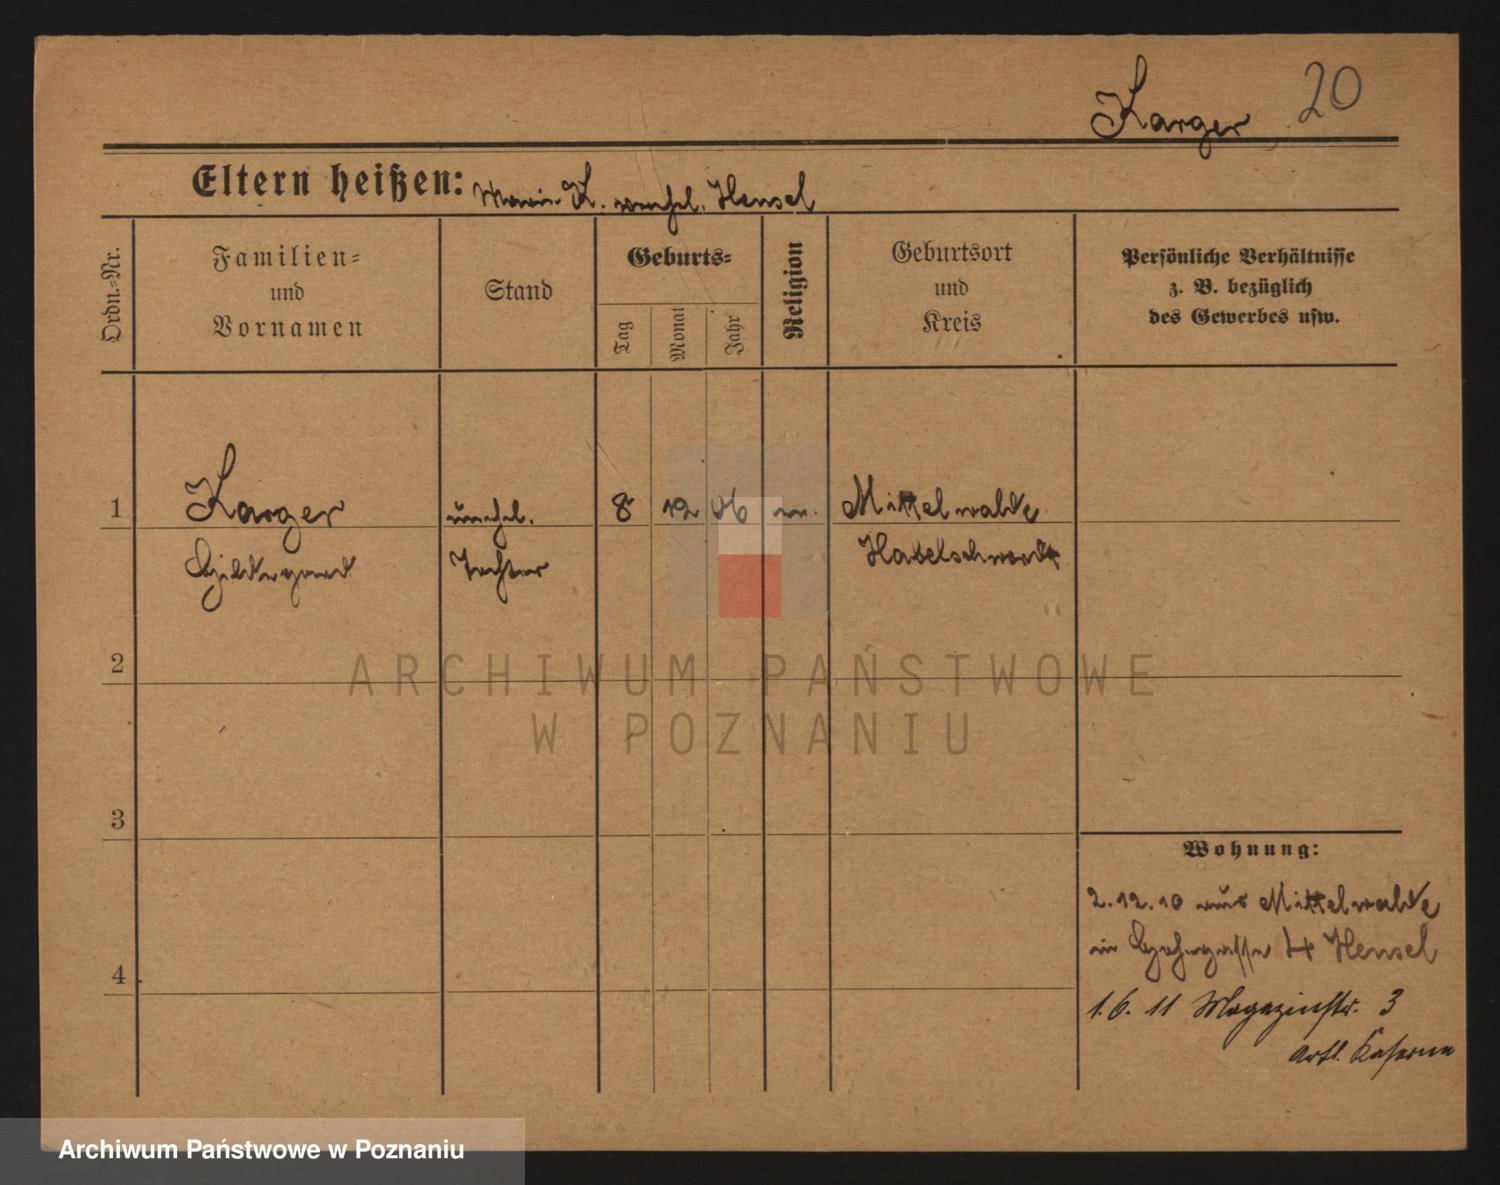 Karger 20
Eltern heißen: Marie K. verehel. Hensel
Ordn.-Nr.
Familien-
und
Vornamen
Stand
Geburts-
Tag
Monat
Jahr
Religion
Geburtsort
und
Kreis
Persönliche Verhältnisse
z. B. bezüglich
des Gewerbes usw.
1 Karger unehel. 8 12 06 Mittelwalde
Hildegard Tochter Habelschwerdt
2
3
4
Wohnung:
2.12.10 aus Mittelwalde
in 4 Hensel
1.6.11 Magazinstr. 3
Artl. Kaserne
ARCHIWUM PAŃSTWOWE
W POZNANIU
Archiwum Państwowe w Poznaniu